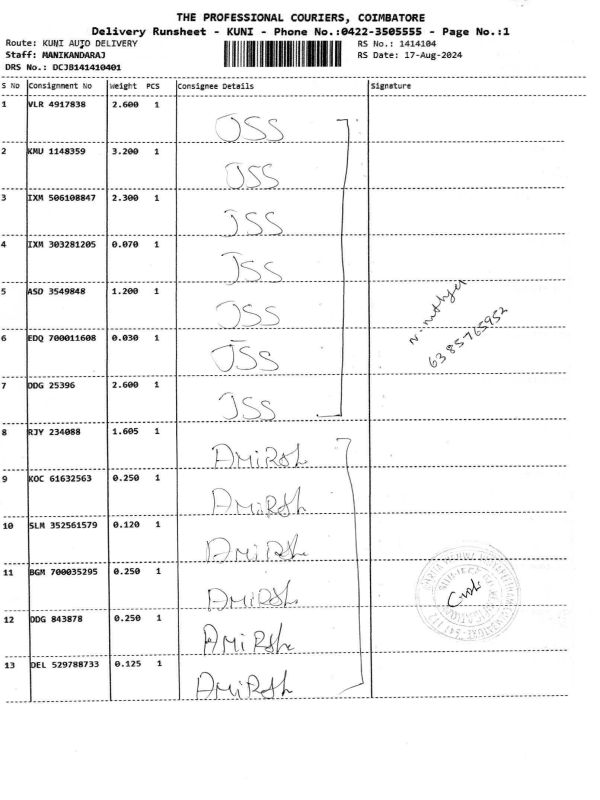 THE PROFESSIONAL COURIERS, COIMBATORE
Delivery Runsheet - KUNI - Phone No.:0422-3505555 - Page No.:1
Route: KUNI AUTO DELIVERY RS No.: 1414104
Staff: MANIKANDARAJ RS Date: 17-Aug-2024
DRS No.: DCJB141410401
S No Consignment No Weight PCS Consignee Details Signature
1 VLR 4917838 2.600 1 JSS
2 KMU 1148359 3.200 1 JSS
3 IXM 506108847 2.300 1 JSS
4 IXM 303281205 0.070 1 JSS
5 ASD 3549848 1.200 1 JSS
6385765952
6 EDQ 700011608 0.030 1 JSS
7 DDG 25396 2.600 1 JSS
8 RJY 234088 1.605 1 AMiRSh
9 KOC 61632563 0.250 1 AMiRSh
10 SLM 352561579 0.120 1 AMiRSh
11 BGM 700035295 0.250 1 AMiRSh
12 DDG 843878 0.250 1 AMiRSh
13 DEL 529788733 0.125 1 AMiRSh